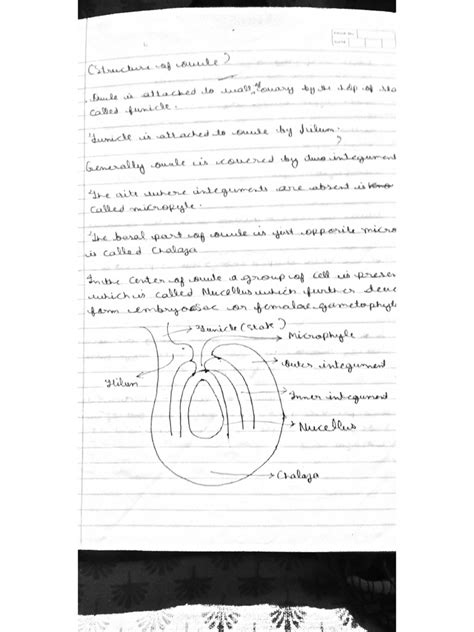 (Structure of ovule)
Ovule is attached to wall of ovary by the help of sta
called funicle.
Funicle is attached to ovule by Hilum.
Generally ovule is covered by two integument
The site where integuments are absent is
called micropyle.
The basal part of ovule is just opposite micro
is called Chalaza
In the center of ovule a group of cell is presen
which is called Nucellus which further deve
form embryosac or female gametophyte
Funicle (Stalk)
Microphyle
Outer integument
Hilum
Inner integument
Nucellus
Chalaza